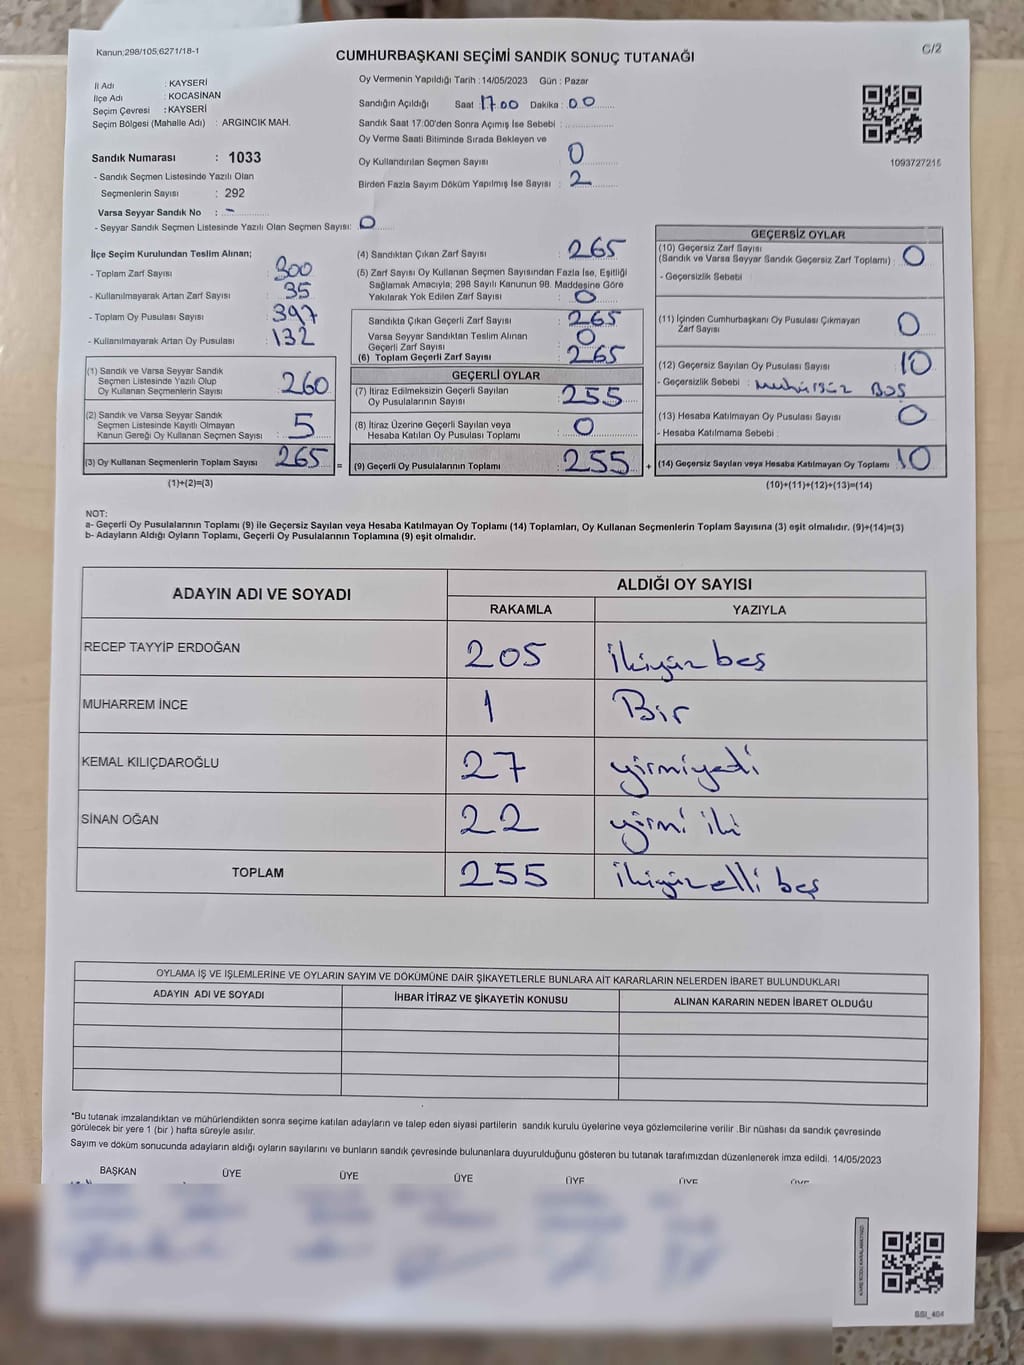 Kanun;298/105,6271/18-1
CUMHURBAŞKANI SEÇİMİ SANDIK SONUÇ TUTANAĞI
C/2
İl Adı : KAYSERİ
İlçe Adı : KOCASİNAN
Seçim Çevresi : KAYSERİ
Seçim Bölgesi (Mahalle Adı) : ARGINCIK MAH.
Sandık Numarası : 1033
- Sandık Seçmen Listesinde Yazılı Olan
Seçmenlerin Sayısı : 292
Varsa Seyyar Sandık No : -
- Seyyar Sandık Seçmen Listesinde Yazılı Olan Seçmen Sayısı: 0
Oy Vermenin Yapıldığı Tarih : 14/05/2023 Gün : Pazar
Sandığın Açıldığı Saat : 17 00 Dakika : 00
Sandık Saat 17:00'den Sonra Açımış İse Sebebi :
Oy Verme Saati Bitiminde Sırada Bekleyen ve
Oy Kullandırılan Seçmen Sayısı : 0
Birden Fazla Sayım Döküm Yapılmış İse Sayısı : 2
1093727215
İlçe Seçim Kurulundan Teslim Alınan;
- Toplam Zarf Sayısı : 300
- Kullanılmayarak Artan Zarf Sayısı : 35
- Toplam Oy Pusulası Sayısı : 397
- Kullanılmayarak Artan Oy Pusulası : 132
(1) Sandık ve Varsa Seyyar Sandık
Seçmen Listesinde Yazılı Olup
Oy Kullanan Seçmenlerin Sayısı : 260
(2) Sandık ve Varsa Seyyar Sandık
Seçmen Listesinde Kayıtlı Olmayan
Kanun Gereği Oy Kullanan Seçmen Sayısı : 5
(3) Oy Kullanan Seçmenlerin Toplam Sayısı : 265
(1)+(2)=(3)
(4) Sandıktan Çıkan Zarf Sayısı : 265
(5) Zarf Sayısı Oy Kullanan Seçmen Sayısından Fazla İse, Eşitliği
Sağlamak Amacıyla; 298 Sayılı Kanunun 98. Maddesine Göre
Yakılarak Yok Edilen Zarf Sayısı : 0
Sandıkta Çıkan Geçerli Zarf Sayısı : 265
Varsa Seyyar Sandıktan Teslim Alınan
Geçerli Zarf Sayısı : 0
(6) Toplam Geçerli Zarf Sayısı : 265
GEÇERLİ OYLAR
(7) İtiraz Edilmeksizin Geçerli Sayılan
Oy Pusulalarının Sayısı : 255
(8) İtiraz Üzerine Geçerli Sayılan veya
Hesaba Katılan Oy Pusulası Toplamı : 0
= (9) Geçerli Oy Pusulalarının Toplamı : 255 +
GEÇERSİZ OYLAR
(10) Geçersiz Zarf Sayısı
(Sandık ve Varsa Seyyar Sandık Geçersiz Zarf Toplamı) : 0
- Geçersizlik Sebebi :
(11) İçinden Cumhurbaşkanı Oy Pusulası Çıkmayan
Zarf Sayısı : 0
(12) Geçersiz Sayılan Oy Pusulası Sayısı : 10
- Geçersizlik Sebebi : Mühürsüz BOŞ
(13) Hesaba Katılmayan Oy Pusulası Sayısı : 0
- Hesaba Katılmama Sebebi :
(14) Geçersiz Sayılan veya Hesaba Katılmayan Oy Toplamı : 10
(10)+(11)+(12)+(13)=(14)
NOT:
a- Geçerli Oy Pusulalarının Toplamı (9) ile Geçersiz Sayılan veya Hesaba Katılmayan Oy Toplamı (14) Toplamları, Oy Kullanan Seçmenlerin Toplam Sayısına (3) eşit olmalıdır. (9)+(14)=(3)
b- Adayların Aldığı Oyların Toplamı, Geçerli Oy Pusulalarının Toplamına (9) eşit olmalıdır.
ADAYIN ADI VE SOYADI ALDIĞI OY SAYISI
RAKAMLA YAZIYLA
RECEP TAYYİP ERDOĞAN 205 ikiyüz beş
MUHARREM İNCE 1 Bir
KEMAL KILIÇDAROĞLU 27 yirmiyedi
SİNAN OĞAN 22 yirmi iki
TOPLAM 255 ikiyüzelli beş
OYLAMA İŞ VE İŞLEMLERİNE VE OYLARIN SAYIM VE DÖKÜMÜNE DAİR ŞİKAYETLERLE BUNLARA AİT KARARLARIN NELERDEN İBARET BULUNDUKLARI
ADAYIN ADI VE SOYADI İHBAR İTİRAZ VE ŞİKAYETİN KONUSU ALINAN KARARIN NEDEN İBARET OLDUĞU
*Bu tutanak imzalandıktan ve mühürlendikten sonra seçime katılan adayların ve talep eden siyasi partilerin sandık kurulu üyelerine veya gözlemcilerine verilir .Bir nüshası da sandık çevresinde
görülecek bir yere 1 (bir ) hafta süreyle asılır.
Sayım ve döküm sonucunda adayların aldığı oyların sayılarını ve bunların sandık çevresinde bulunanlara duyurulduğunu gösteren bu tutanak tarafımızdan düzenlenerek imza edildi. 14/05/2023
BAŞKAN ÜYE ÜYE ÜYE ÜYE ÜYE ÜYE
SSI_404